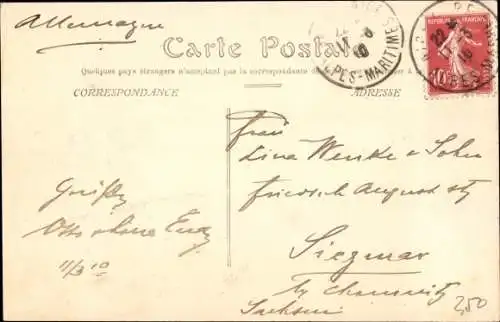 Allemagne
Carte Postale
Quelques pays étrangers n'acceptant pas la correspondance
CORRESPONDANCE
ADRESSE
RÉPUBLIQUE FRANÇAISE
10
ALPES-MARITIMES
Frau
Lina Wenke & Sohn
Friedrich August Str
Siegmar
by Chemnitz
Sachsen
Grüße
Otto
11/3 10
250